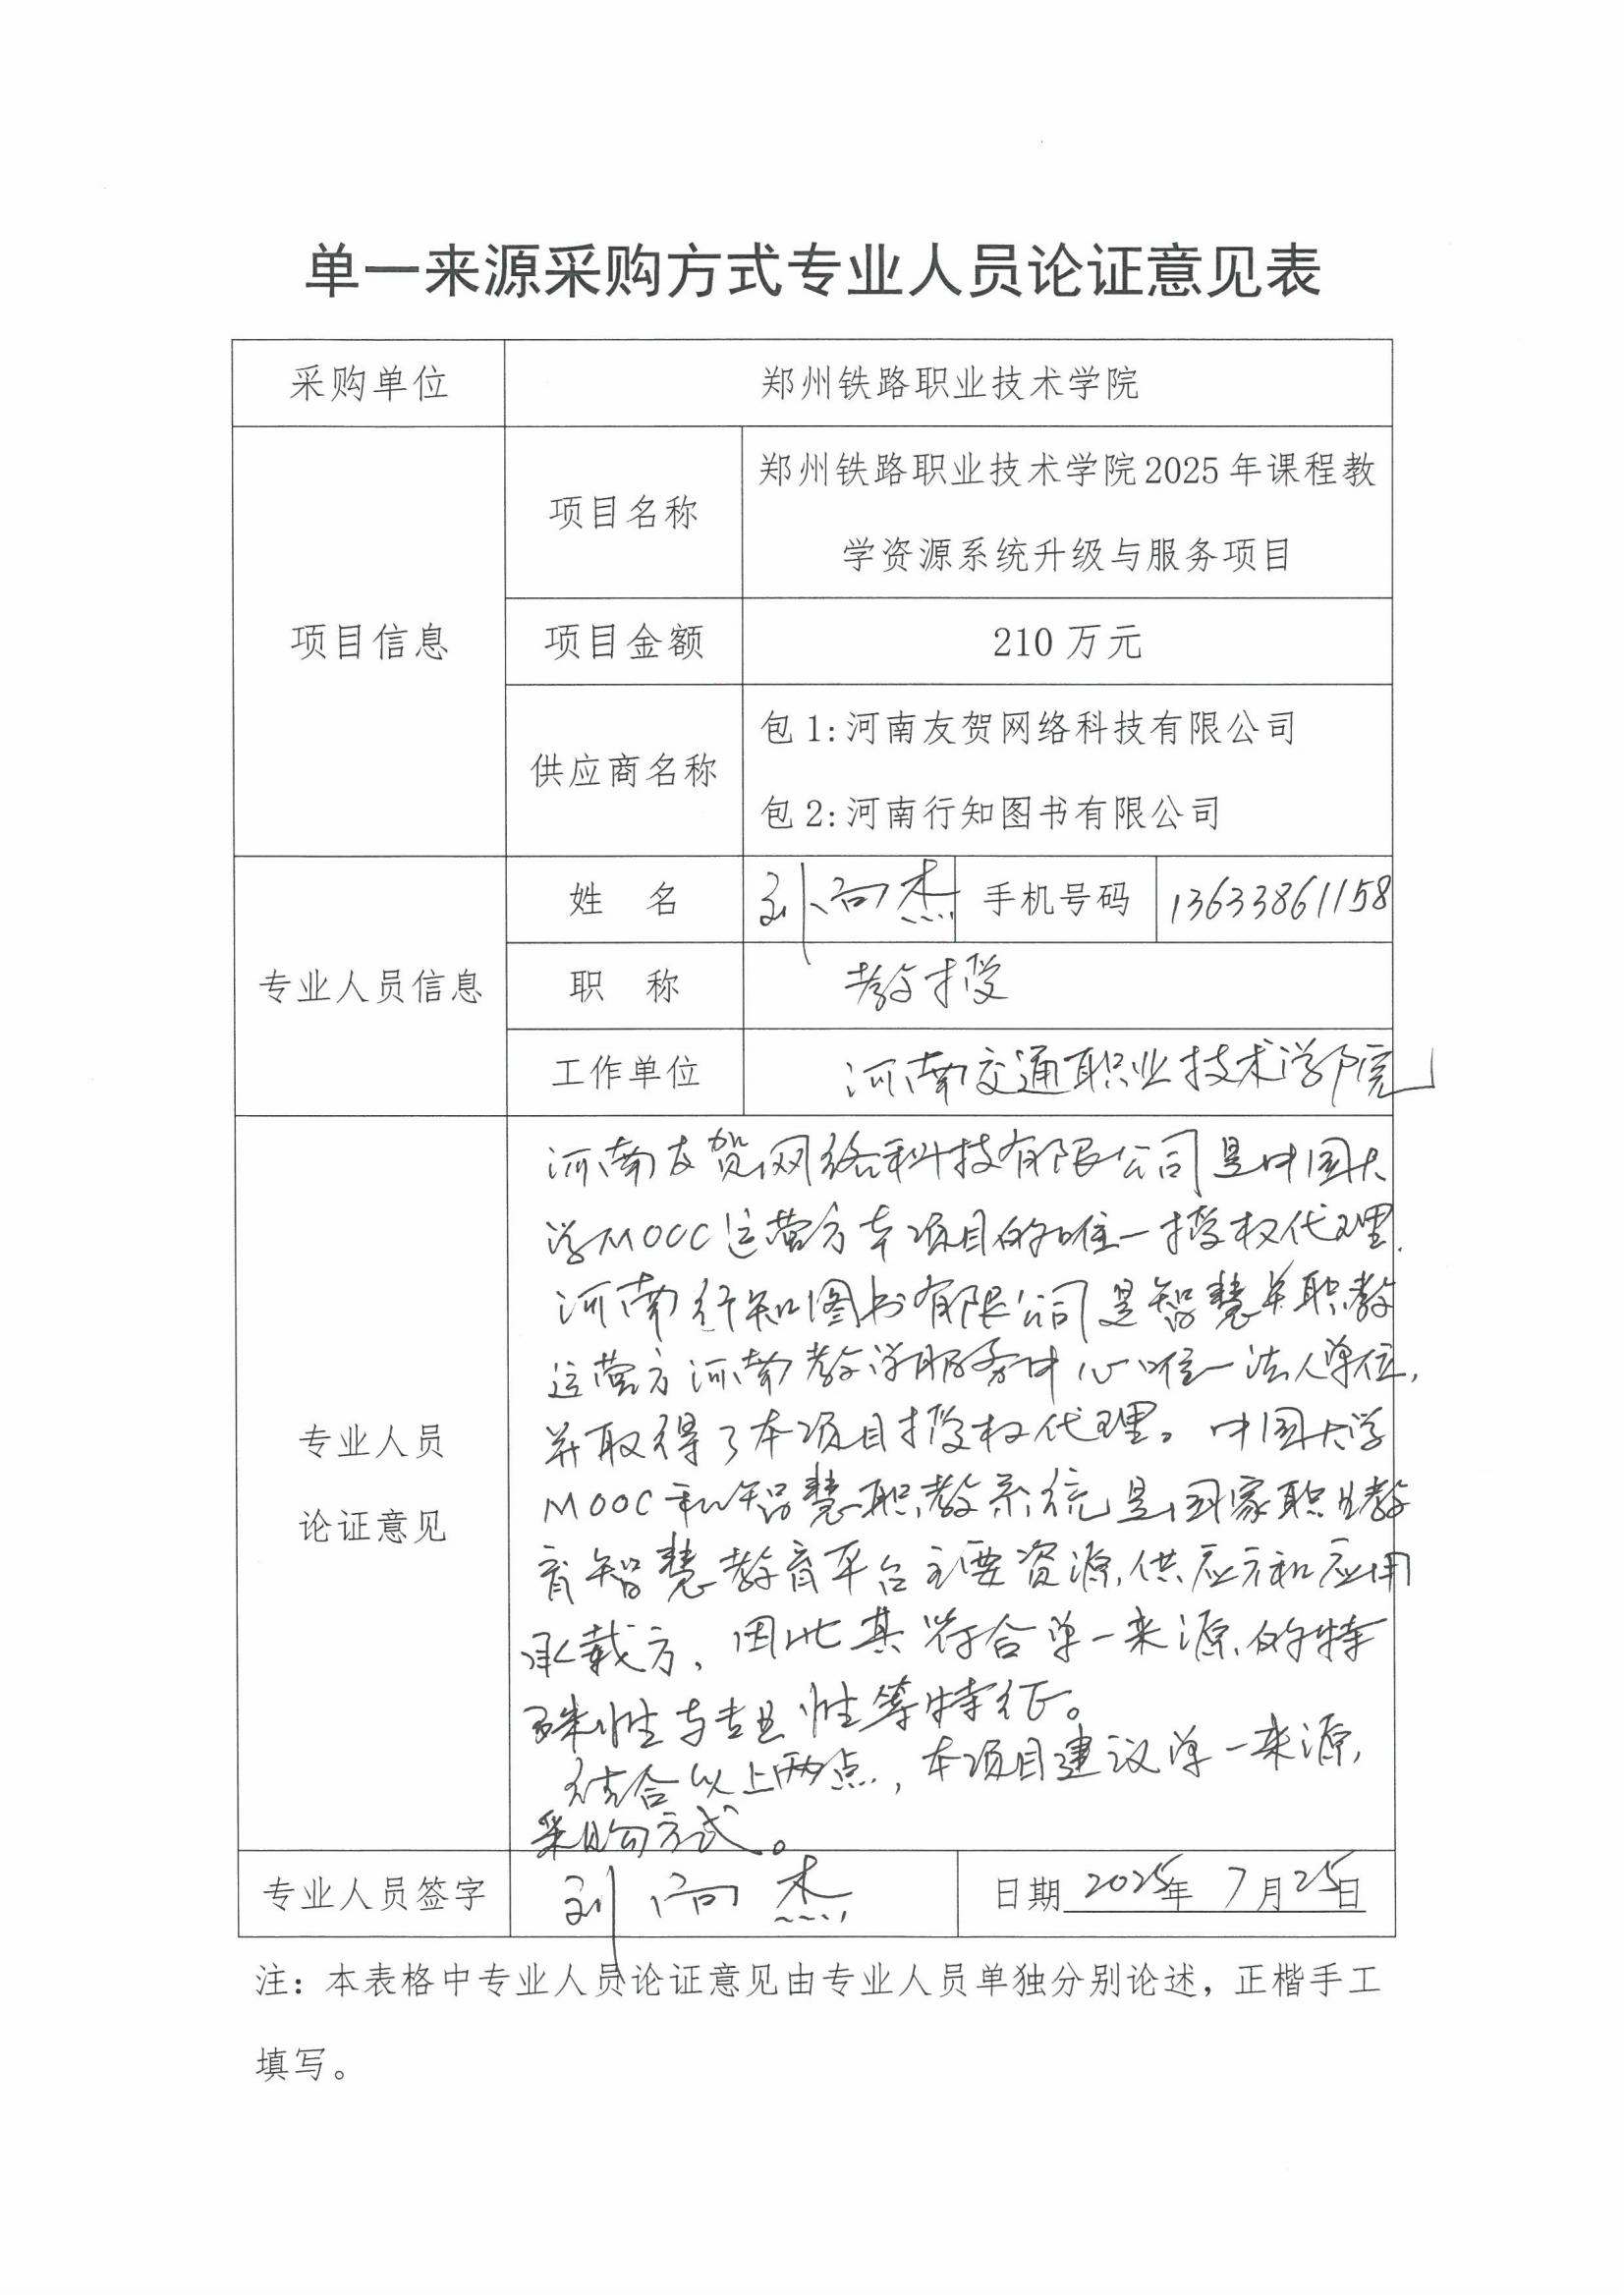 单一来源采购方式专业人员论证意见表
采购单位 郑州铁路职业技术学院
项目信息
项目名称 郑州铁路职业技术学院2025年课程教
学资源系统升级与服务项目
项目金额 210万元
供应商名称
包1:河南友贺网络科技有限公司
包2:河南行知图书有限公司
专业人员信息
姓 名 刘尚杰 手机号码 13633861158
职 称 教授
工作单位 河南交通职业技术学院
专业人员
论证意见
河南友贺网络科技有限公司是中国大
学MOOC运营方本项目的唯一授权代理.
河南行知图书有限公司是智慧职教
运营方河南教学服务中心唯一法人单位,
并取得了本项目授权代理。中国大学
MOOC和智慧职教系统是国家职业教
育智慧教育平台主要资源供应方和应用
承载方,因此其符合单一来源的特
殊性与专业性等特征。
结合以上两点,本项目建议单一来源
采购方式。
专业人员签字 刘尚杰 日期 2025年 7月25日
注：本表格中专业人员论证意见由专业人员单独分别论述，正楷手工
填写。